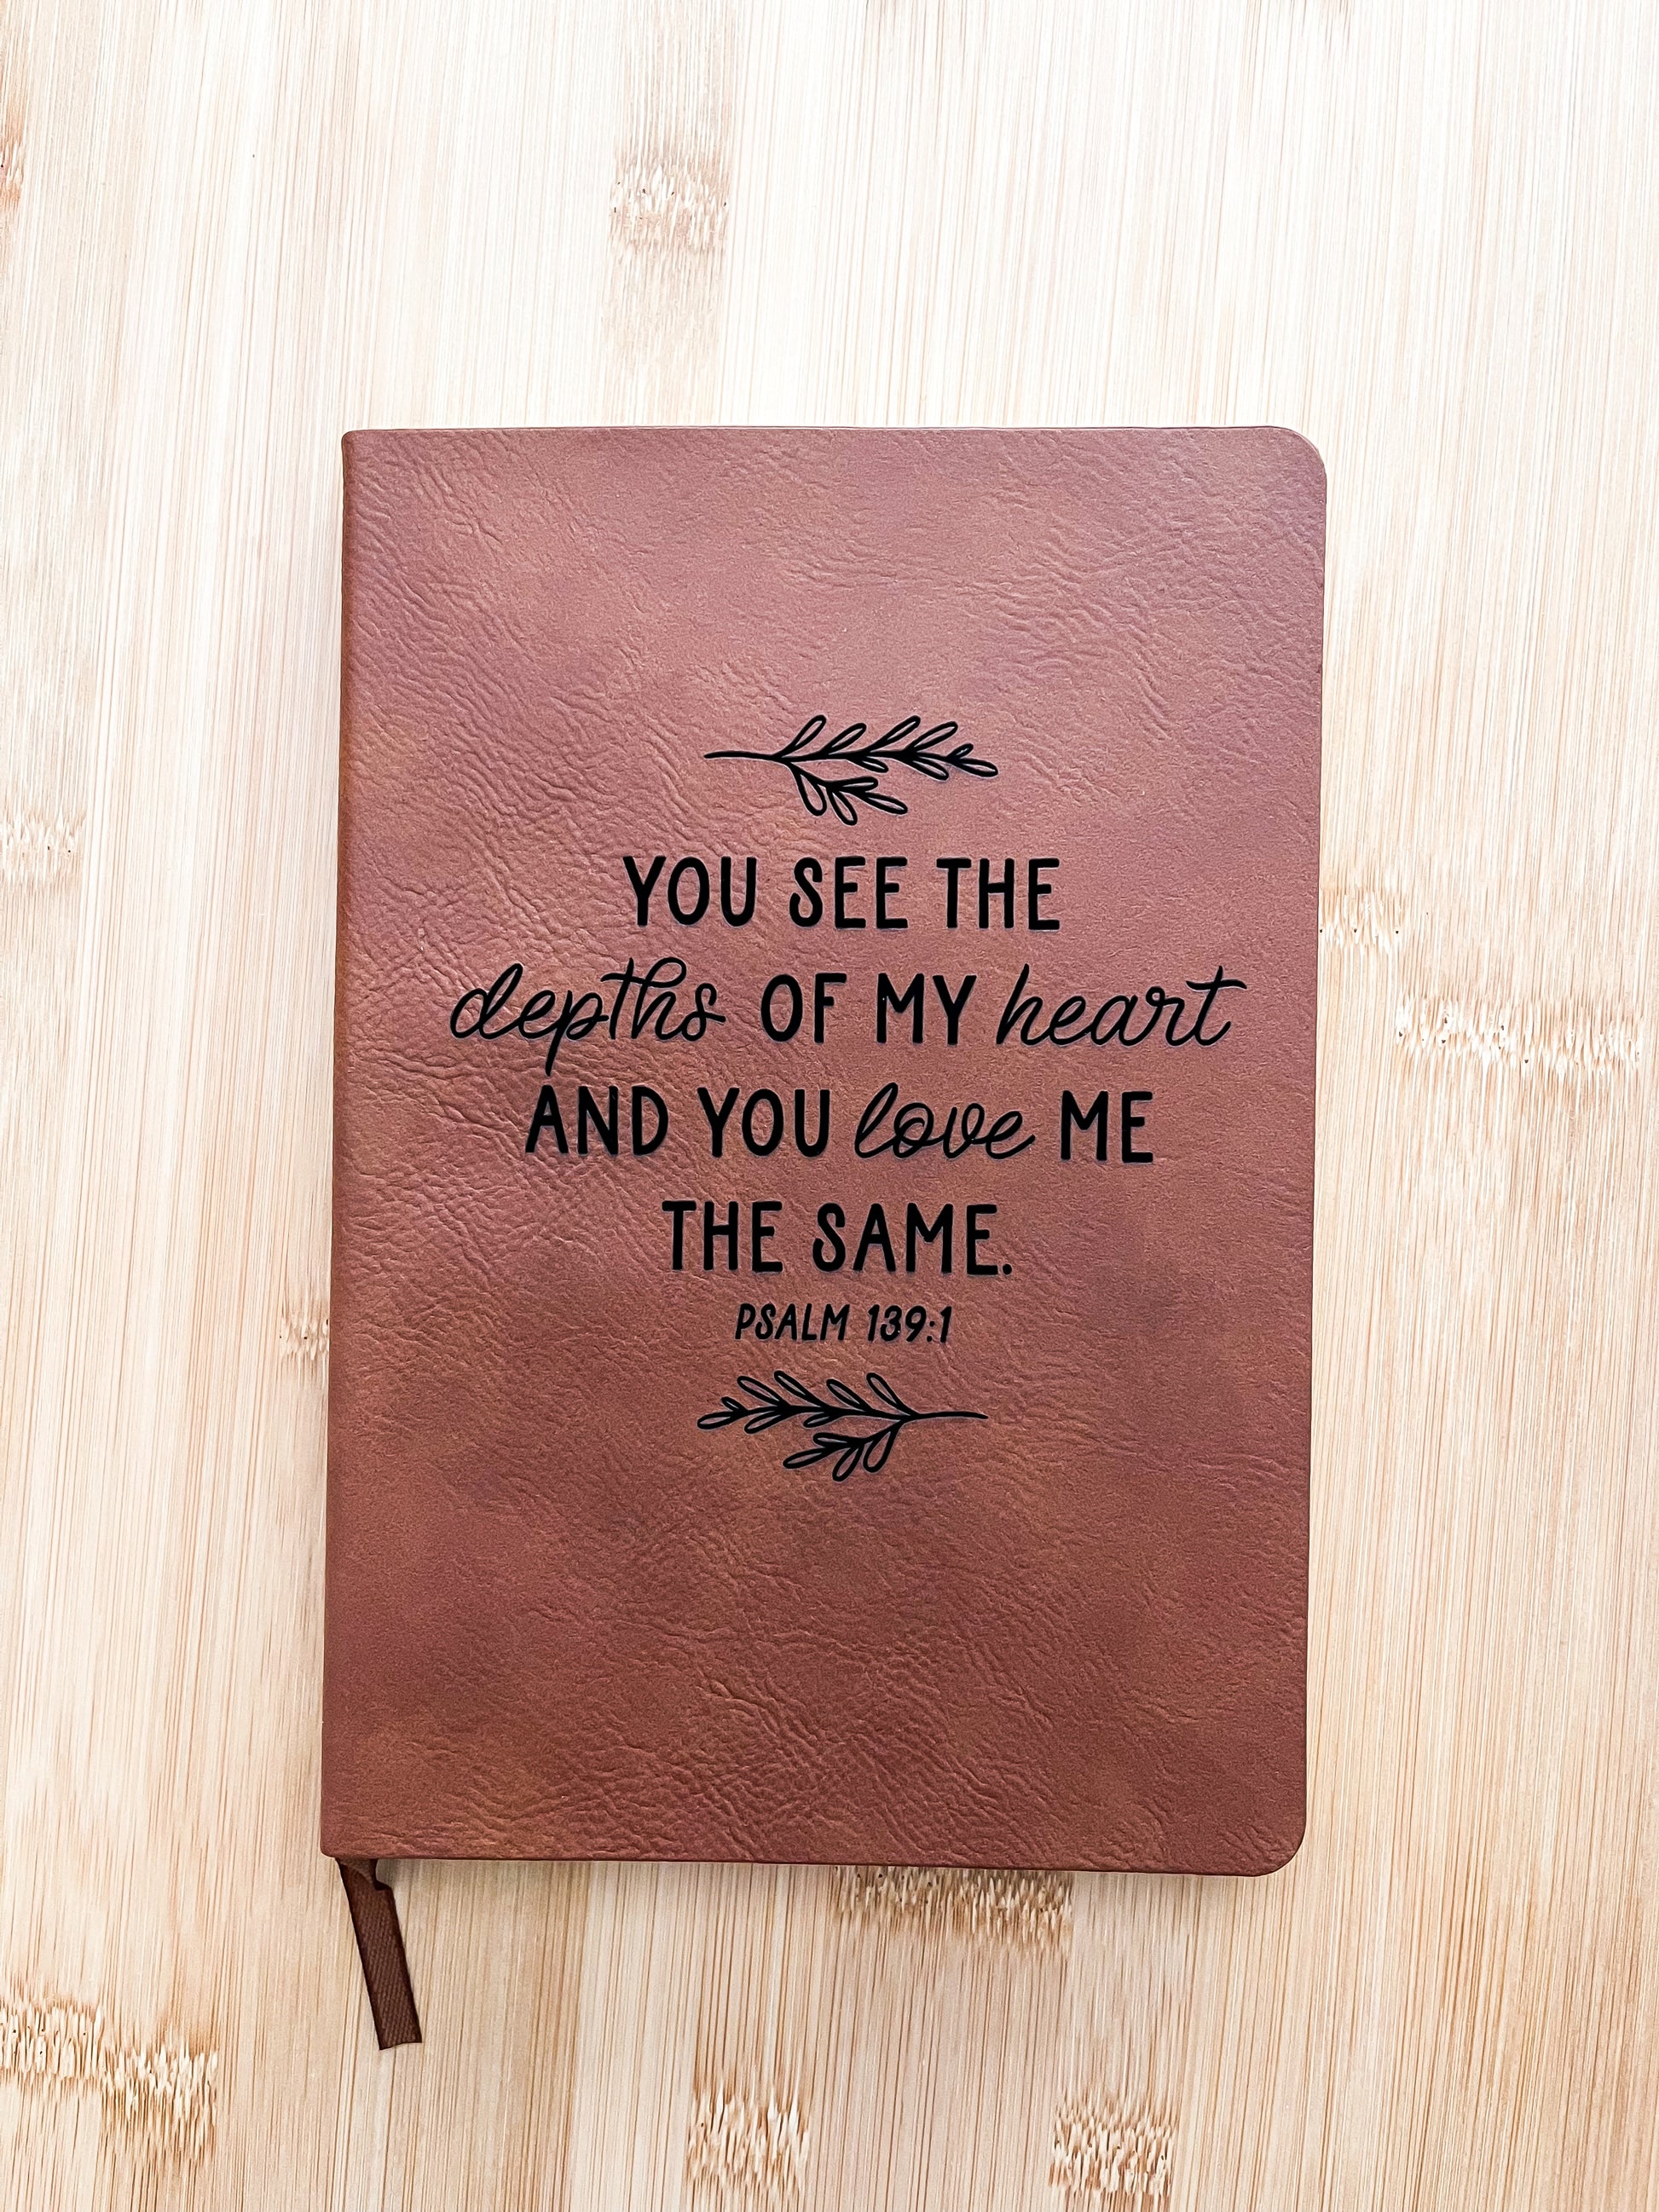 YOU SEE THE
depths OF MY heart
AND YOU love ME
THE SAME.
PSALM 139:1